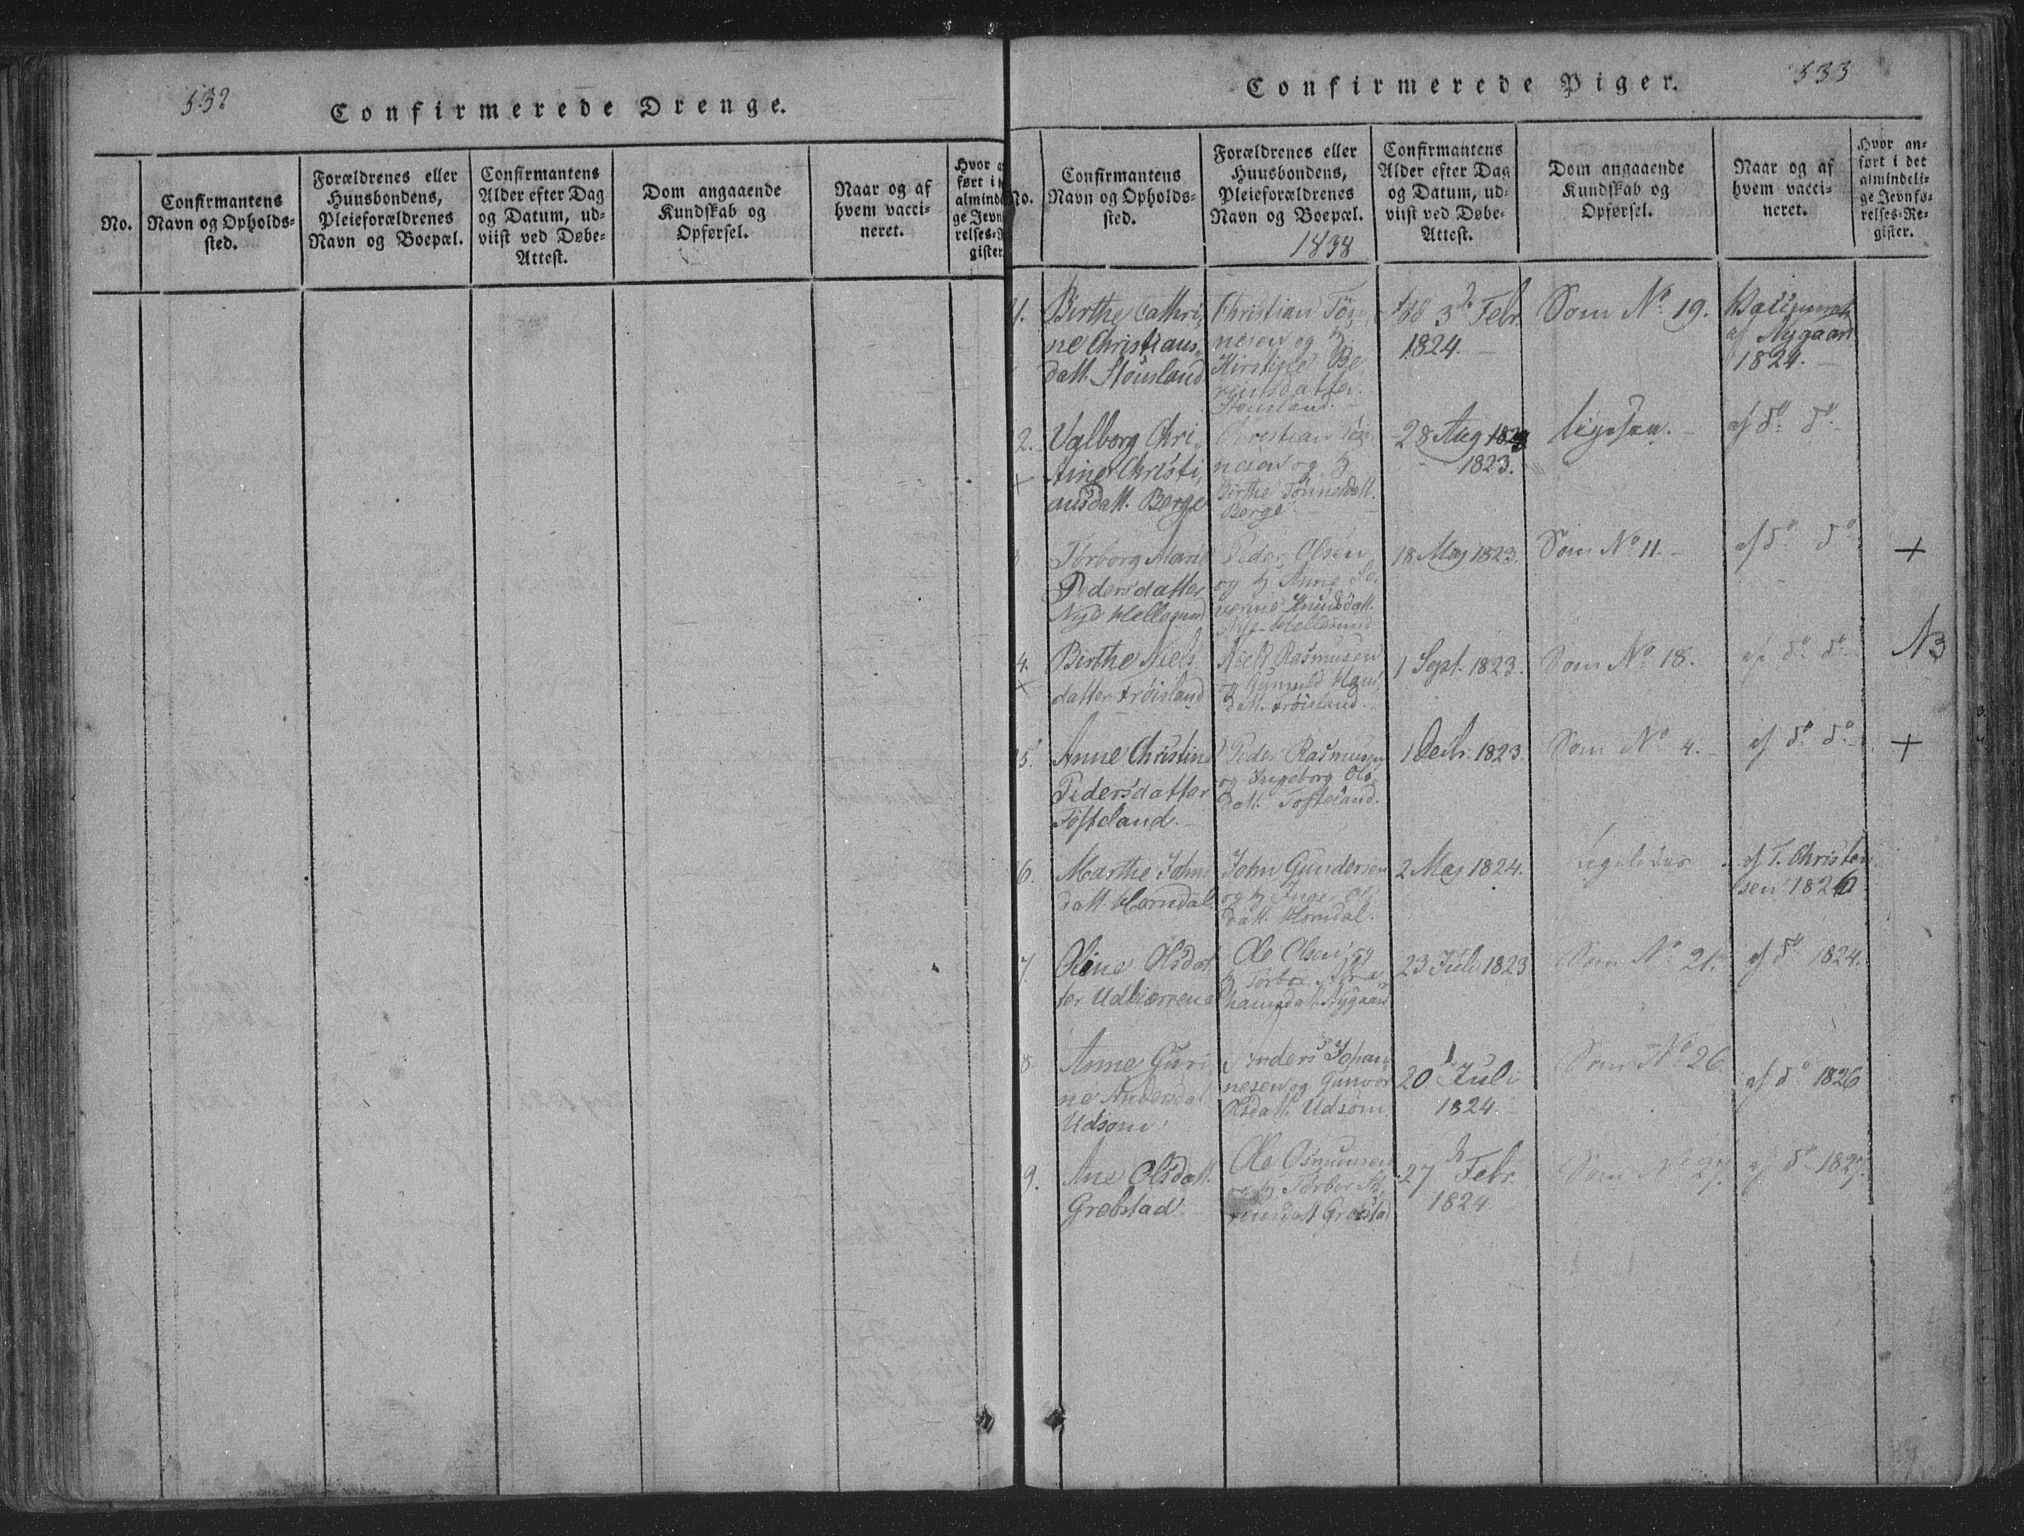 532
Confirmerede Drenge.
No.
Confirmantens
Navn og Opholds-
sted.
Forældrenes eller
Huusbondens,
Pleieforældrenes
Navn og Boepæl.
Confirmantens
Alder efter Dag
og Datum, ud-
viist ved Døbe-
Attest.
Dom angaaende
Kundskab og
Opførsel.
Naar og af
hvem vacci-
neret.
Hvor
ført i
almind
ge Jevn
relses-R
gister.
Confirmerede Piger.
533
No.
Confirmantens
Navn og Opholds-
sted.
Forældrenes eller
Huusbondens,
Pleieforældrenes
Navn og Boepæl.
1838
Confirmantens
Alder efter Dag
og Datum, ud-
viist ved Døbe-
Attest.
Dom angaaende
Kundskab og
Opførsel.
Naar og af
hvem vacci-
neret.
Hvor an-
ført i det
almindeli-
ge Jevnfø-
relses-Re-
gister.
1.
Birthe Cathri-
ne Christians-
datt. Stousland
Christian Tøn-
nesen og H.
Kirstine Be-
rentsdatter
Stousland.
3 Febr.
1824.
Som No 19.
Vaccineret
af Nygaard
1824.
2.
Valborg Chri-
stine Christi-
ansdatt. Berge
Christian Tøn-
nesen og H
Birthe Tønnesdatt.
Berge
28 Aug
1823.
af do do
Torborg Marie
Pedersdatter
Nye Hellesund
Peder Olsen
og H Anne Se-
verine Knudsdatt.
Nye-Hellesund
18 Maj 1823.
Som No 11.
af do do
+
4.
Birthe Niels-
datter Frøisland
Niels Rasmusen
og Gunnild Hans-
datt. Frøisland.
1 Sept. 1823.
Som No 18.
af do do
N3
5.
Anne Christine
Pedersdatter
Tofteland.
Peder Rasmusen
og Ingeborg Ols-
datt. Tofteland.
1 Decbr. 1823.
Som No 4.
af do do
+
6.
Marthe Johns-
datt. Homdal
John Gundersen
og H Inger Ols-
datt. Homdal.
2 Maj 1824.
af T. Christen-
sen 1826
7.
Oline Olsdat-
ter Udtiørrene
Ole Olsen og
H Torbor Abra-
hamsdat. Nygaard
23 Juli 1823
Som No 21.
af do 1824.
8.
Anne Guri-
ne Andersdat
Udsom
Anders Johan-
nesen og Gunvor
Olsdatt. Udsom
20 Juli
1824.
Som No 26.
af do 1826
9.
Ane Olsdatt.
Grebstad
Ole Osmunsen
og H Torbor
Grebstad
27 Febr.
1824
Som No 27.
af do 1827.